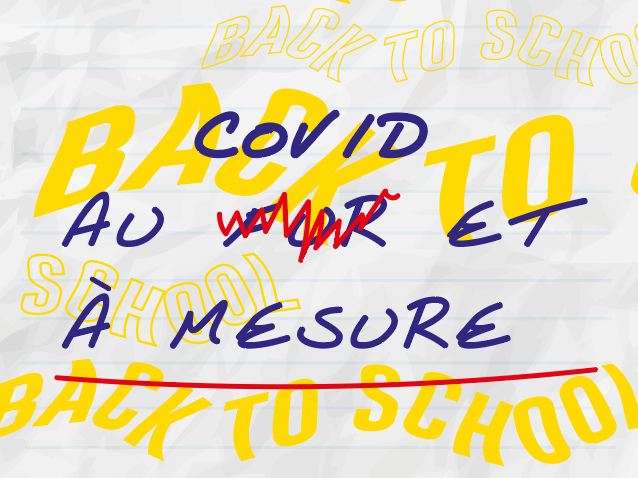 BACK TO SCHOO
BACK TO
COVID
AU FOR ET
SCHOOL
À MESURE
BACK TO SCHOOL